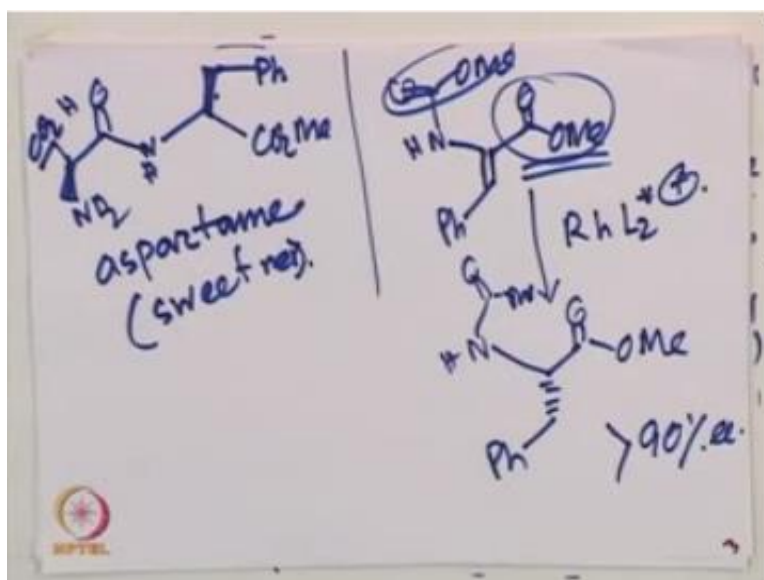 Ph
CO2H
O
N
H
CO2Me
NH2
aspartame
(sweetner).
O
OMe
H N
O
OMe
Ph
RhL2* +.
O
H N
O
OMe
Ph
>90% ee.
NPTEL